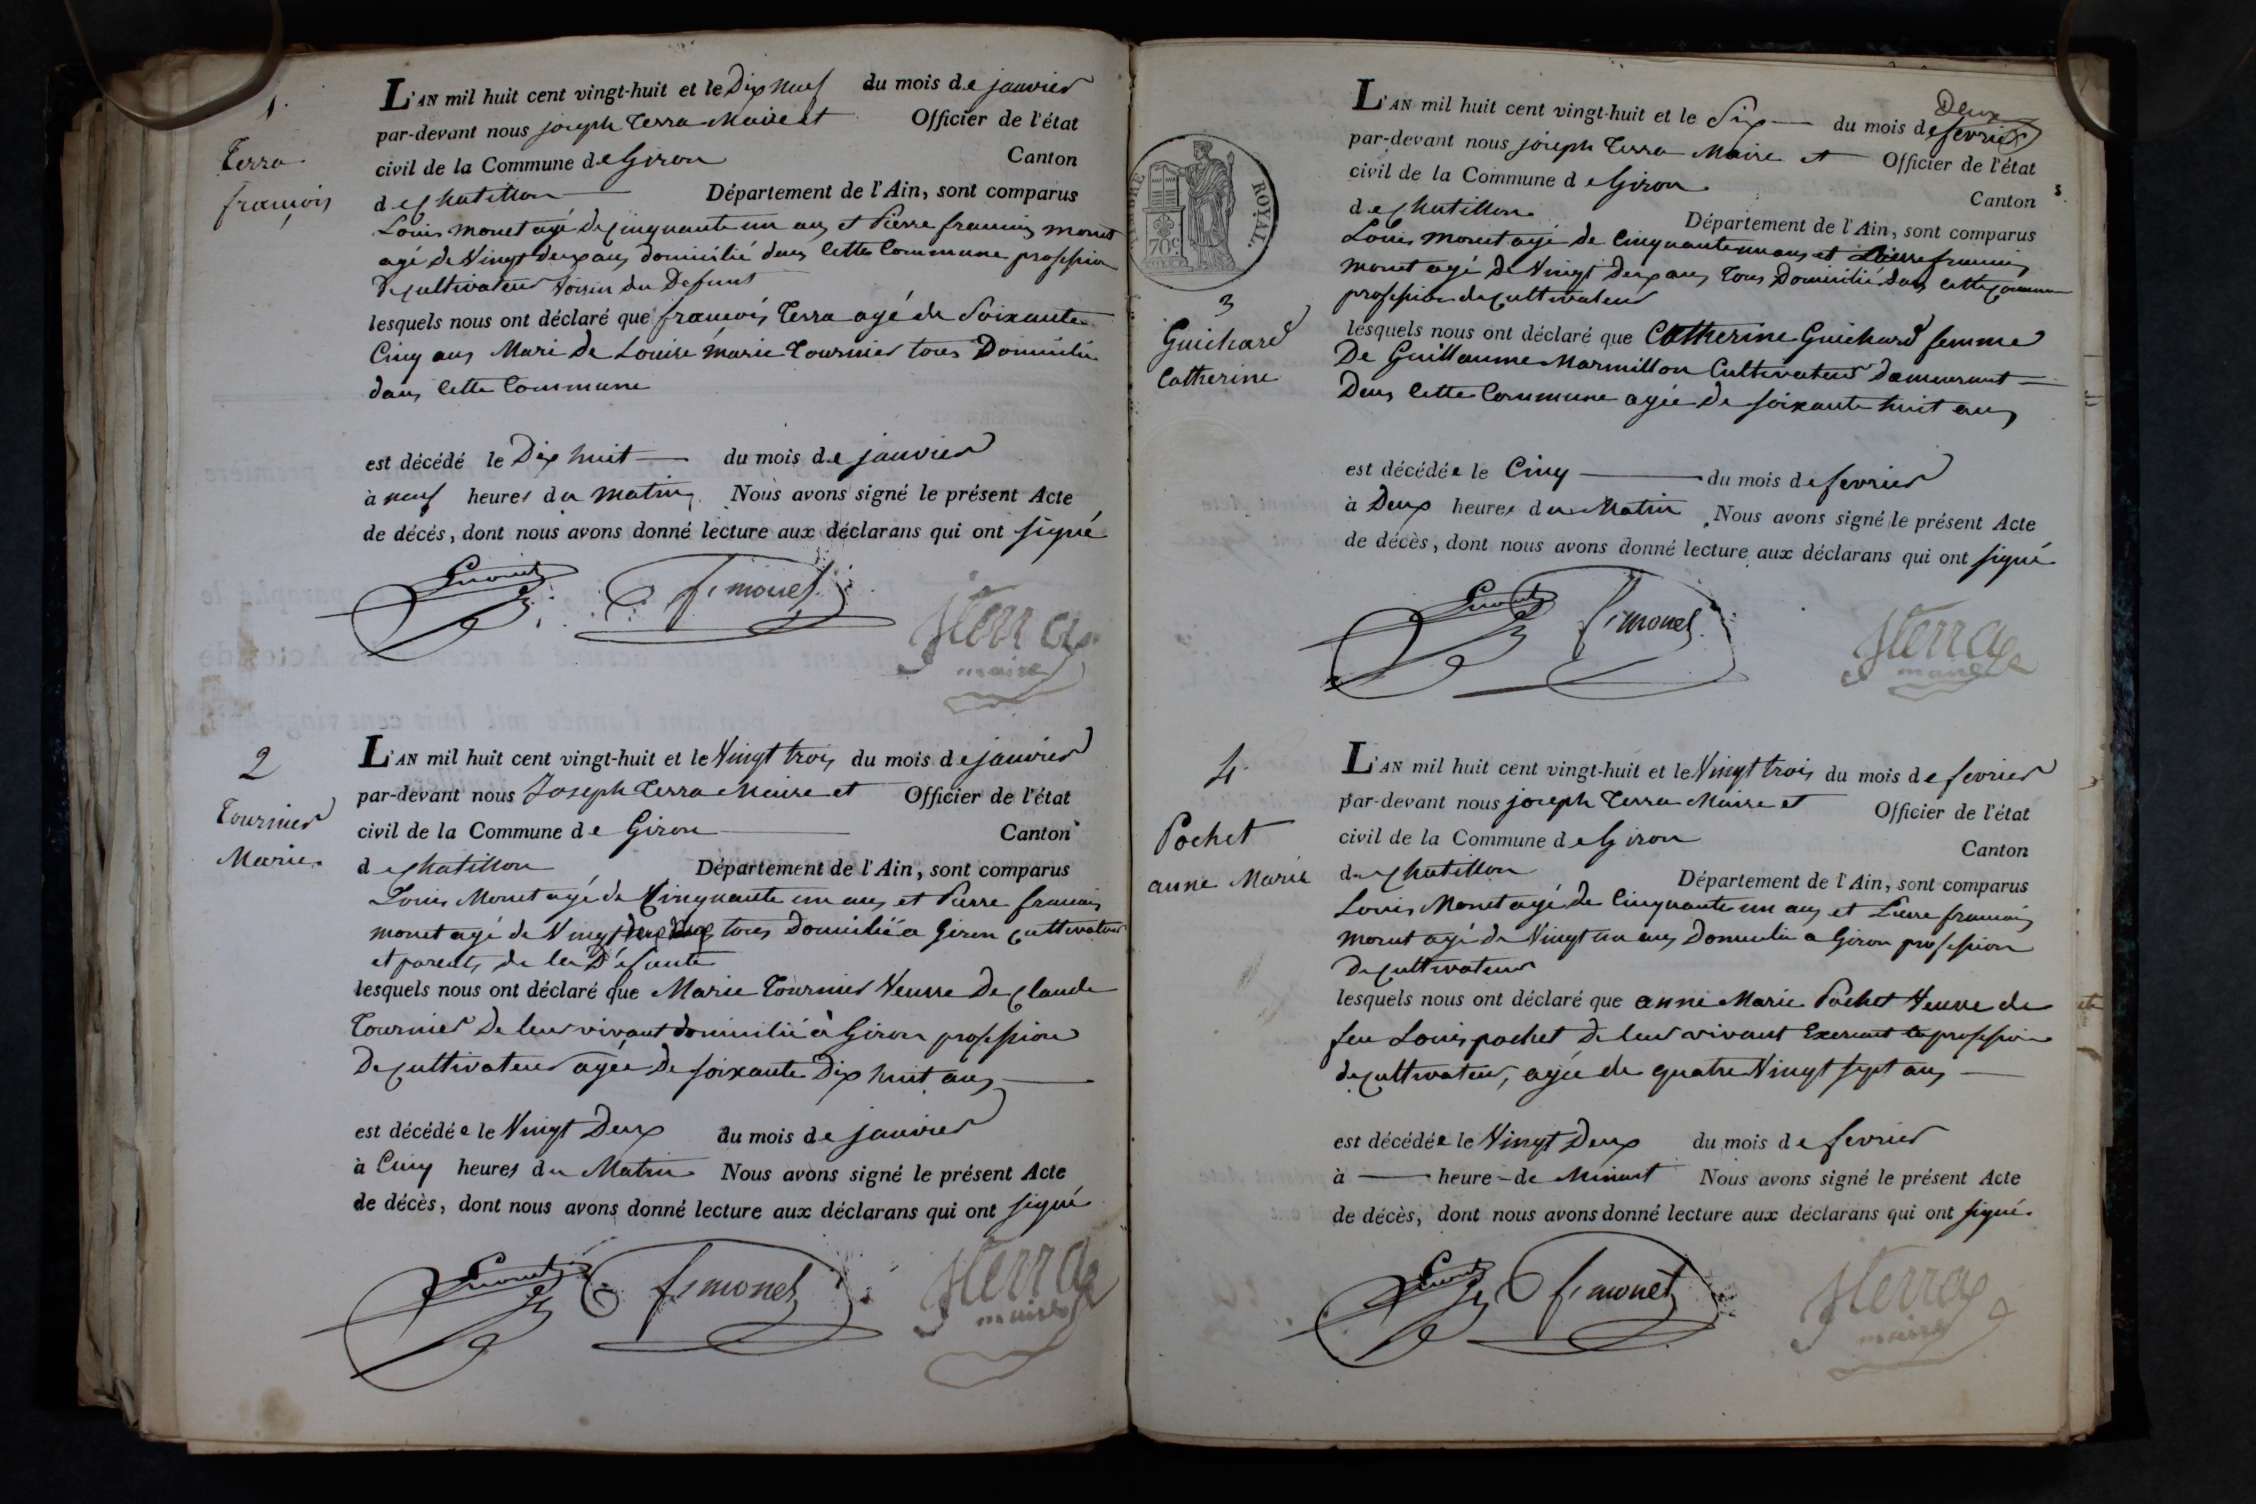 1.
Terra
françois
L'AN mil huit cent vingt-huit et le Dix neuf du mois de janvier
par-devant nous joseph Terra Maire et Officier de l'état
civil de la Commune de Giron Canton
de chatillon Département de l'Ain, sont comparus
Louis monet agé de cinquante un ans et Pierre françois monet
agé de Vingt deux ans domicilié dans cette Commune profession
de cultivateur voisin du Defunt
lesquels nous ont déclaré que françois Terra agé de Soixante
Cinq ans Mari de Louise marie Tournier tous Domicilié
dans cette Commune
est décédé le Dix huit du mois de janvier
à neuf heures du matin. Nous avons signé le présent Acte
de décès, dont nous avons donné lecture aux déclarans qui ont signé
Lmonet f. monet jterra
maire
2
Tournier
Marie.
L'AN mil huit cent vingt-huit et le Vingt trois du mois de janvier
par-devant nous Joseph Terra Maire et Officier de l'état
civil de la Commune de Giron Canton
de chatillon Département de l'Ain, sont comparus
Louis Monet agé de Cinquante un ans et Pierre françois
monet agé de Vingt tous Domicilié a Giron cultivateur
et parents de la Défunte
lesquels nous ont déclaré que Marie Tournier Veuve De claude
Tournier De leur vivant domicilié à Giron profession
De cultivateur agée De soixante Dix huit ans
est décédée le Vingt Deux du mois de janvier
à Cinq heures du Matin Nous avons signé le présent Acte
de décès, dont nous avons donné lecture aux déclarans qui ont signé
Lmonet f. monet jterra
maire
Deux
TIMBRE ROYAL.
70c
3
Guichard
Catherine
L'AN mil huit cent vingt-huit et le Six du mois de fevrier
par-devant nous joseph Terra Maire et Officier de l'état
civil de la Commune de Giron Canton
de chatillon Département de l'Ain, sont comparus
Louis monet agé de Cinquante un ans et Pierre françois
monet agé de Vingt Deux ans Tous Domicilié dans cette commune
profession de cultivateur
lesquels nous ont déclaré que Catherine Guichard femme
De Guillaume Marmillon Cultivateur demeurant
Dans Cette Commune agée de soixante huit ans
est décédée le Cinq du mois de fevrier
à Deux heures du Matin Nous avons signé le présent Acte
de décès, dont nous avons donné lecture aux déclarans qui ont signé
Lmonet f. monet jterra
maire
4.
Pochet
anne Marie
L'AN mil huit cent vingt-huit et le Vingt trois du mois de fevrier
par-devant nous joseph Terra Maire et Officier de l'état
civil de la Commune de Giron Canton
de chatillon Département de l'Ain, sont comparus
Louis Monet agé de Cinquante un ans et Pierre françois
monet agé de Vingt un ans Domicilié a Giron profession
De cultivateur
lesquels nous ont déclaré que anne Marie Pochet Veuve de
feu Louis pochet de leur vivant Exercant la profession
de cultivateur, agée de quatre Vingt sept ans
est décédée le Vingt Deux du mois de fevrier
à heure de Minuit Nous avons signé le présent Acte
de décès, dont nous avons donné lecture aux déclarans qui ont signé.
Lmonet f. monet jterra
maire